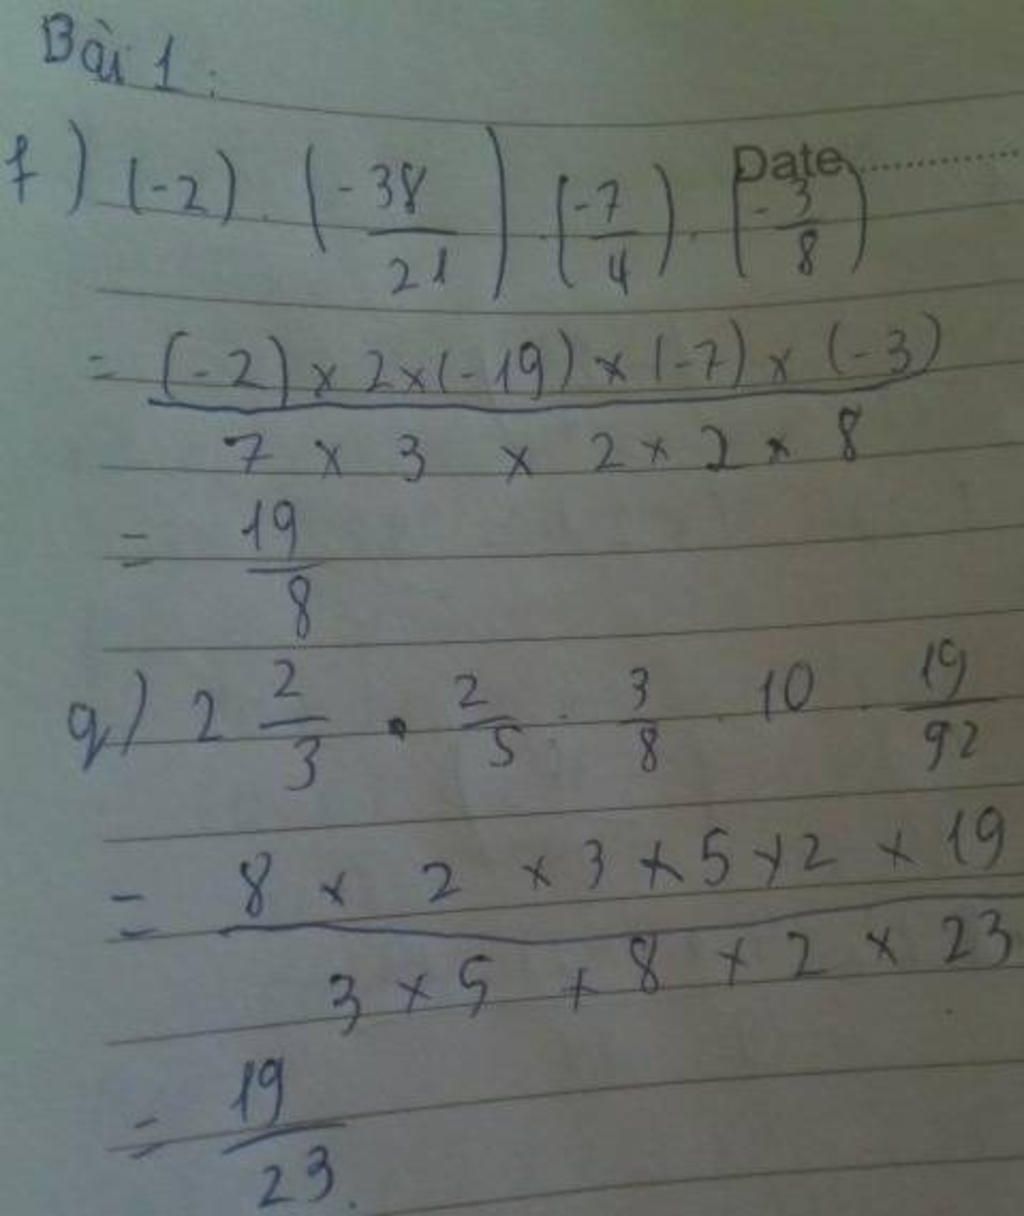 Bài 1:
Date
f) (-2) . (-38/21) . (-7/4) . (-3/8)
= (-2) × 2 × (-19) × (-7) × (-3) / 7 × 3 × 2 × 2 × 8
= 19/8
g) 2 2/3 . 2/5 . 3/8 . 10 . 19/92
= 8 × 2 × 3 × 5 × 2 × 19 / 3 × 5 × 8 × 2 × 23
= 19/23.